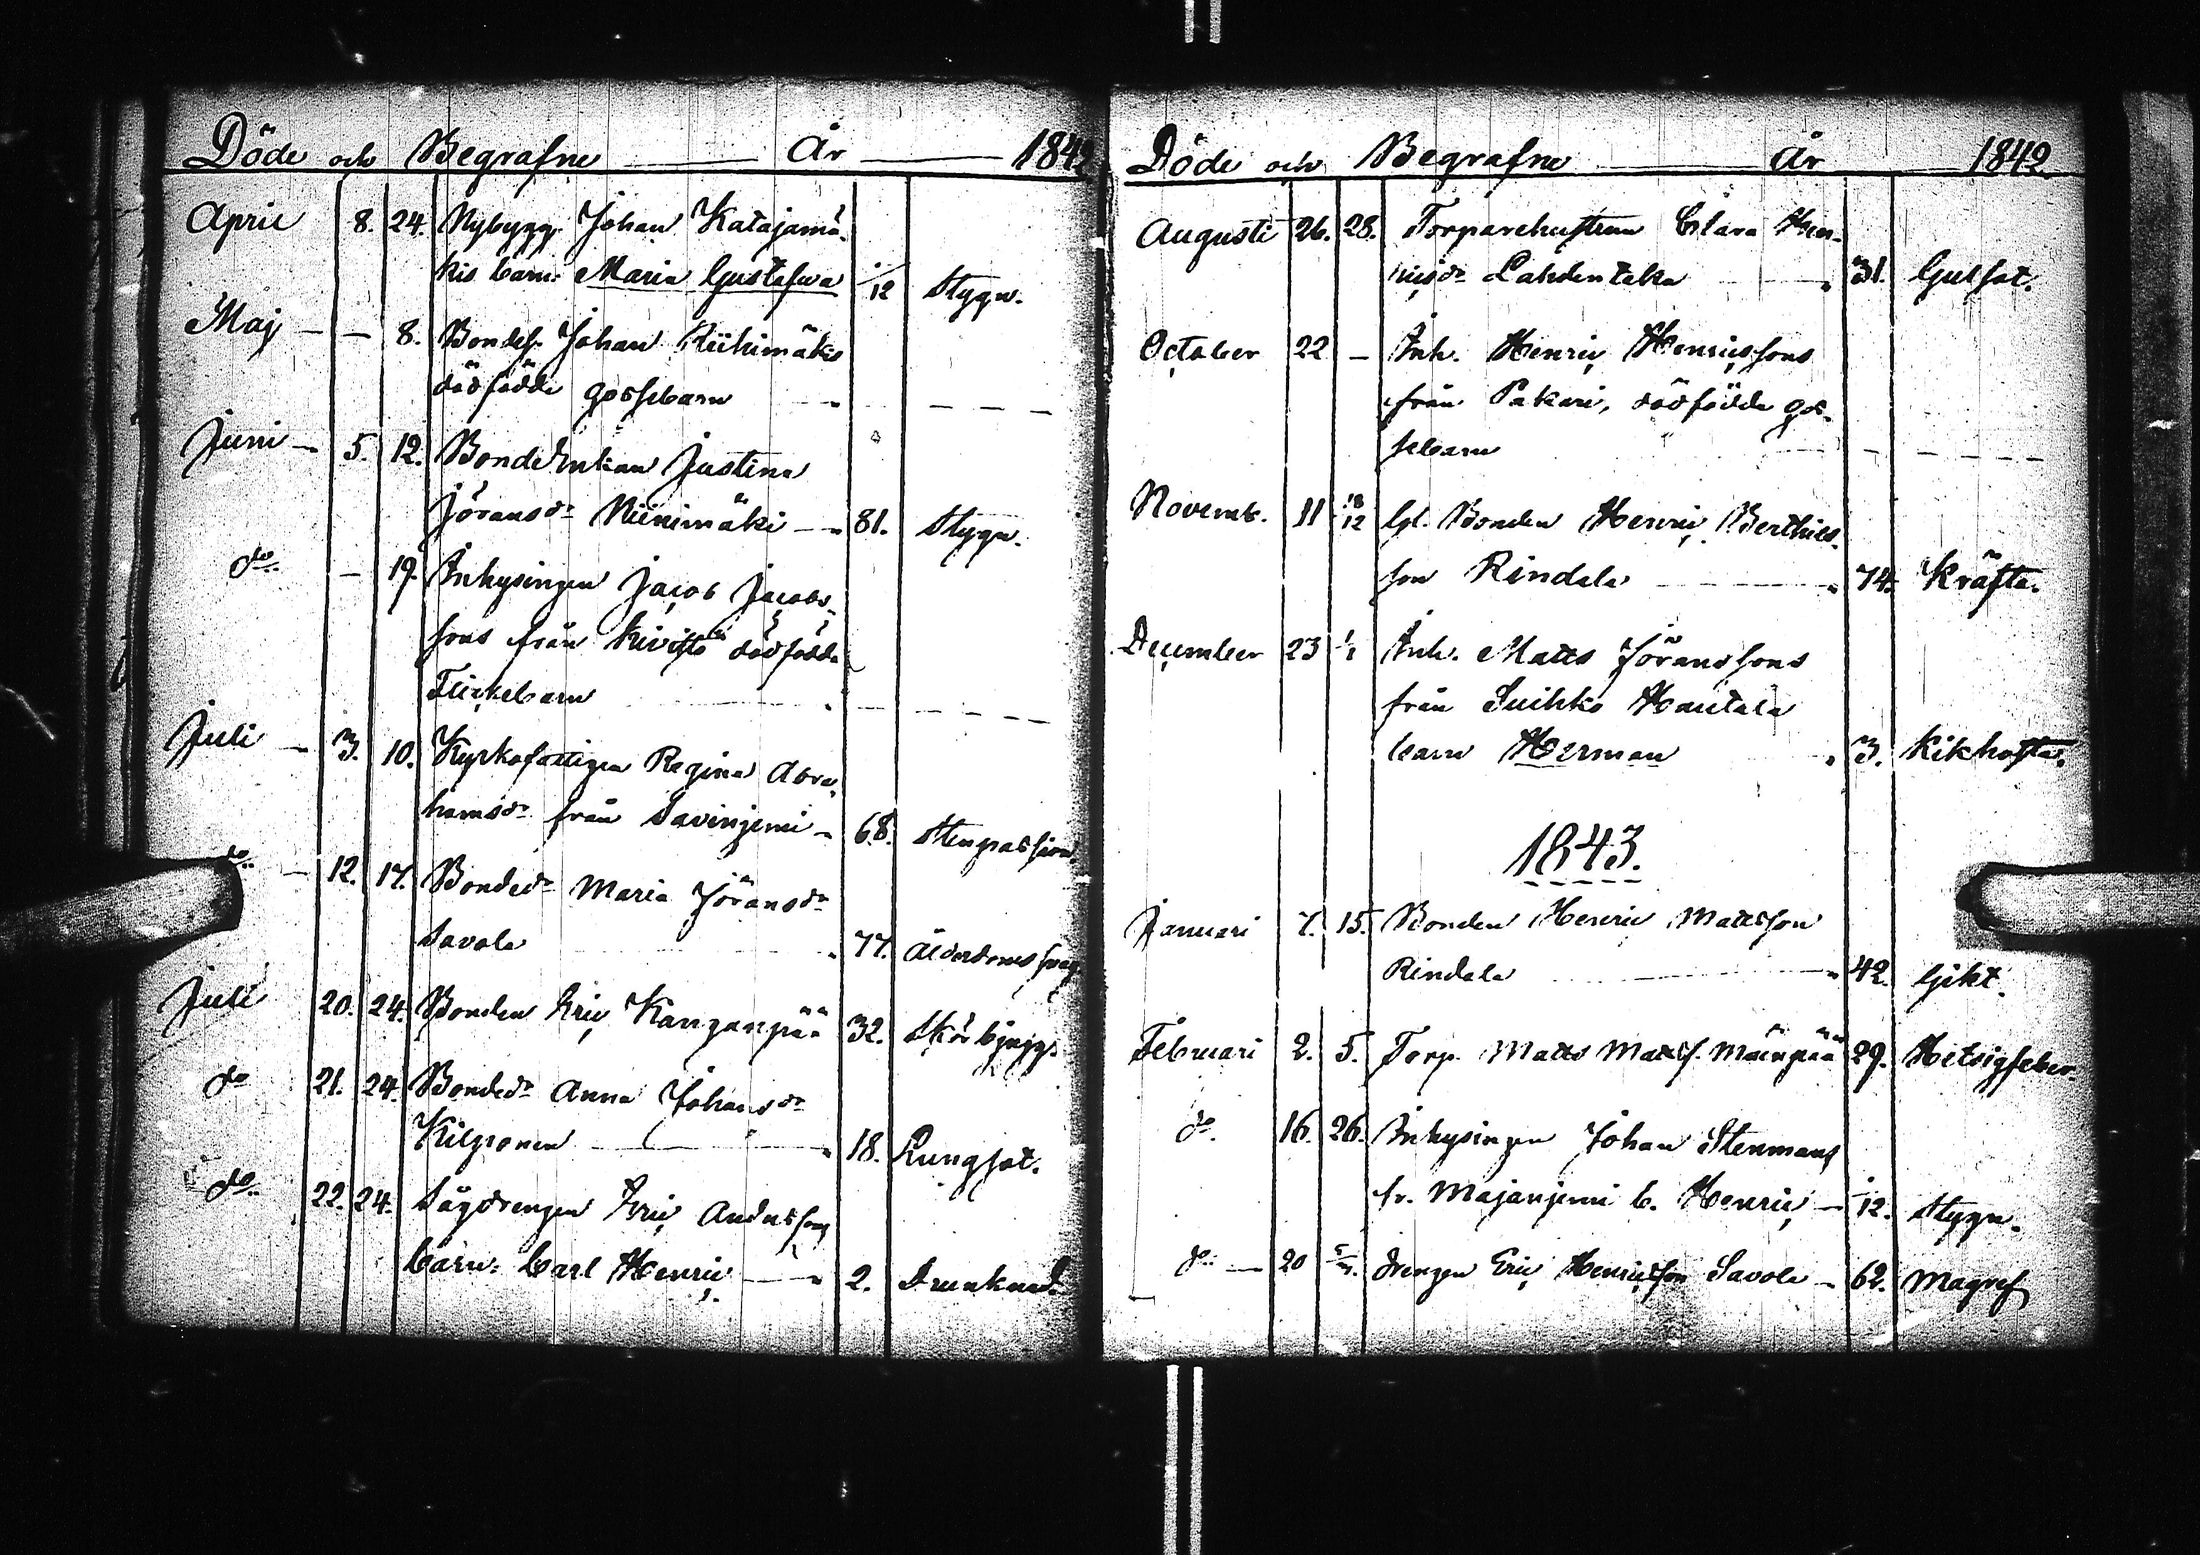 Döde och Begrafne År 1842
April 8. 24. Nybygg. Johan Katajamä-
kis barn: Maria Gustafwa /12 Stygn.
Maj — — 8. Bondes. Johan Riihimäkis
dödfödde gossebarn
Juni — 5. 12. Bondeenkan Justina
Jöransdr Niinimäki — 81. Stygn.
do — 19. Inhysingen Jacob Jacobs-
sons från Kivistö dödfödda
Flickebarn
Juli — 3. 10. Kyrkofattigen Regina Abra-
hamsdr från Savinjemi — 68. Stenpassion
do — 12. 17. Bondedr Maria Jöransdr
Savola 77. Ålderdomssvag
Juli 20. 24. Bonden Eric Kanganpää 32. Skörbjugg.
do 21. 24. Bondedr Anna Johansdr
Kilponen 18. Lungsot.
do 22. 24. Sågdrengen Eric Andersson
barn: Carl Henric — 2. Drunknad.
Döde och Begrafne År 1842.
Augusti 26. 28. Torparehustrun Clara Hen-
ricsdr Lahdentaka 31. Gulsot.
October 22 — Inh. Henric Henricssons
från Pakari, dödfödde gos-
sebarn
Novemb. 11 18/12 Gl. Bonden Henric Berthils-
son Rindala 74. Kräfta.
December 23 1/1 Inh. Matts Jöranssons
från Suihko Hautala
barn Herman 3. Kikhosta.
1843.
Januari 7. 15. Bonden Henric Mattsson
Rindala 42. Gikt.
Februari 2. 5. Torp. Matts Mattss. Mäenpää 29. Hetsigfeber.
do. 16. 26. Inhysingen Johan Stenmans
fr. Majanjemi b. Henric — /12. Stygn.
do — 20 Drengen Eric Henricsson Savola — 62. Magref